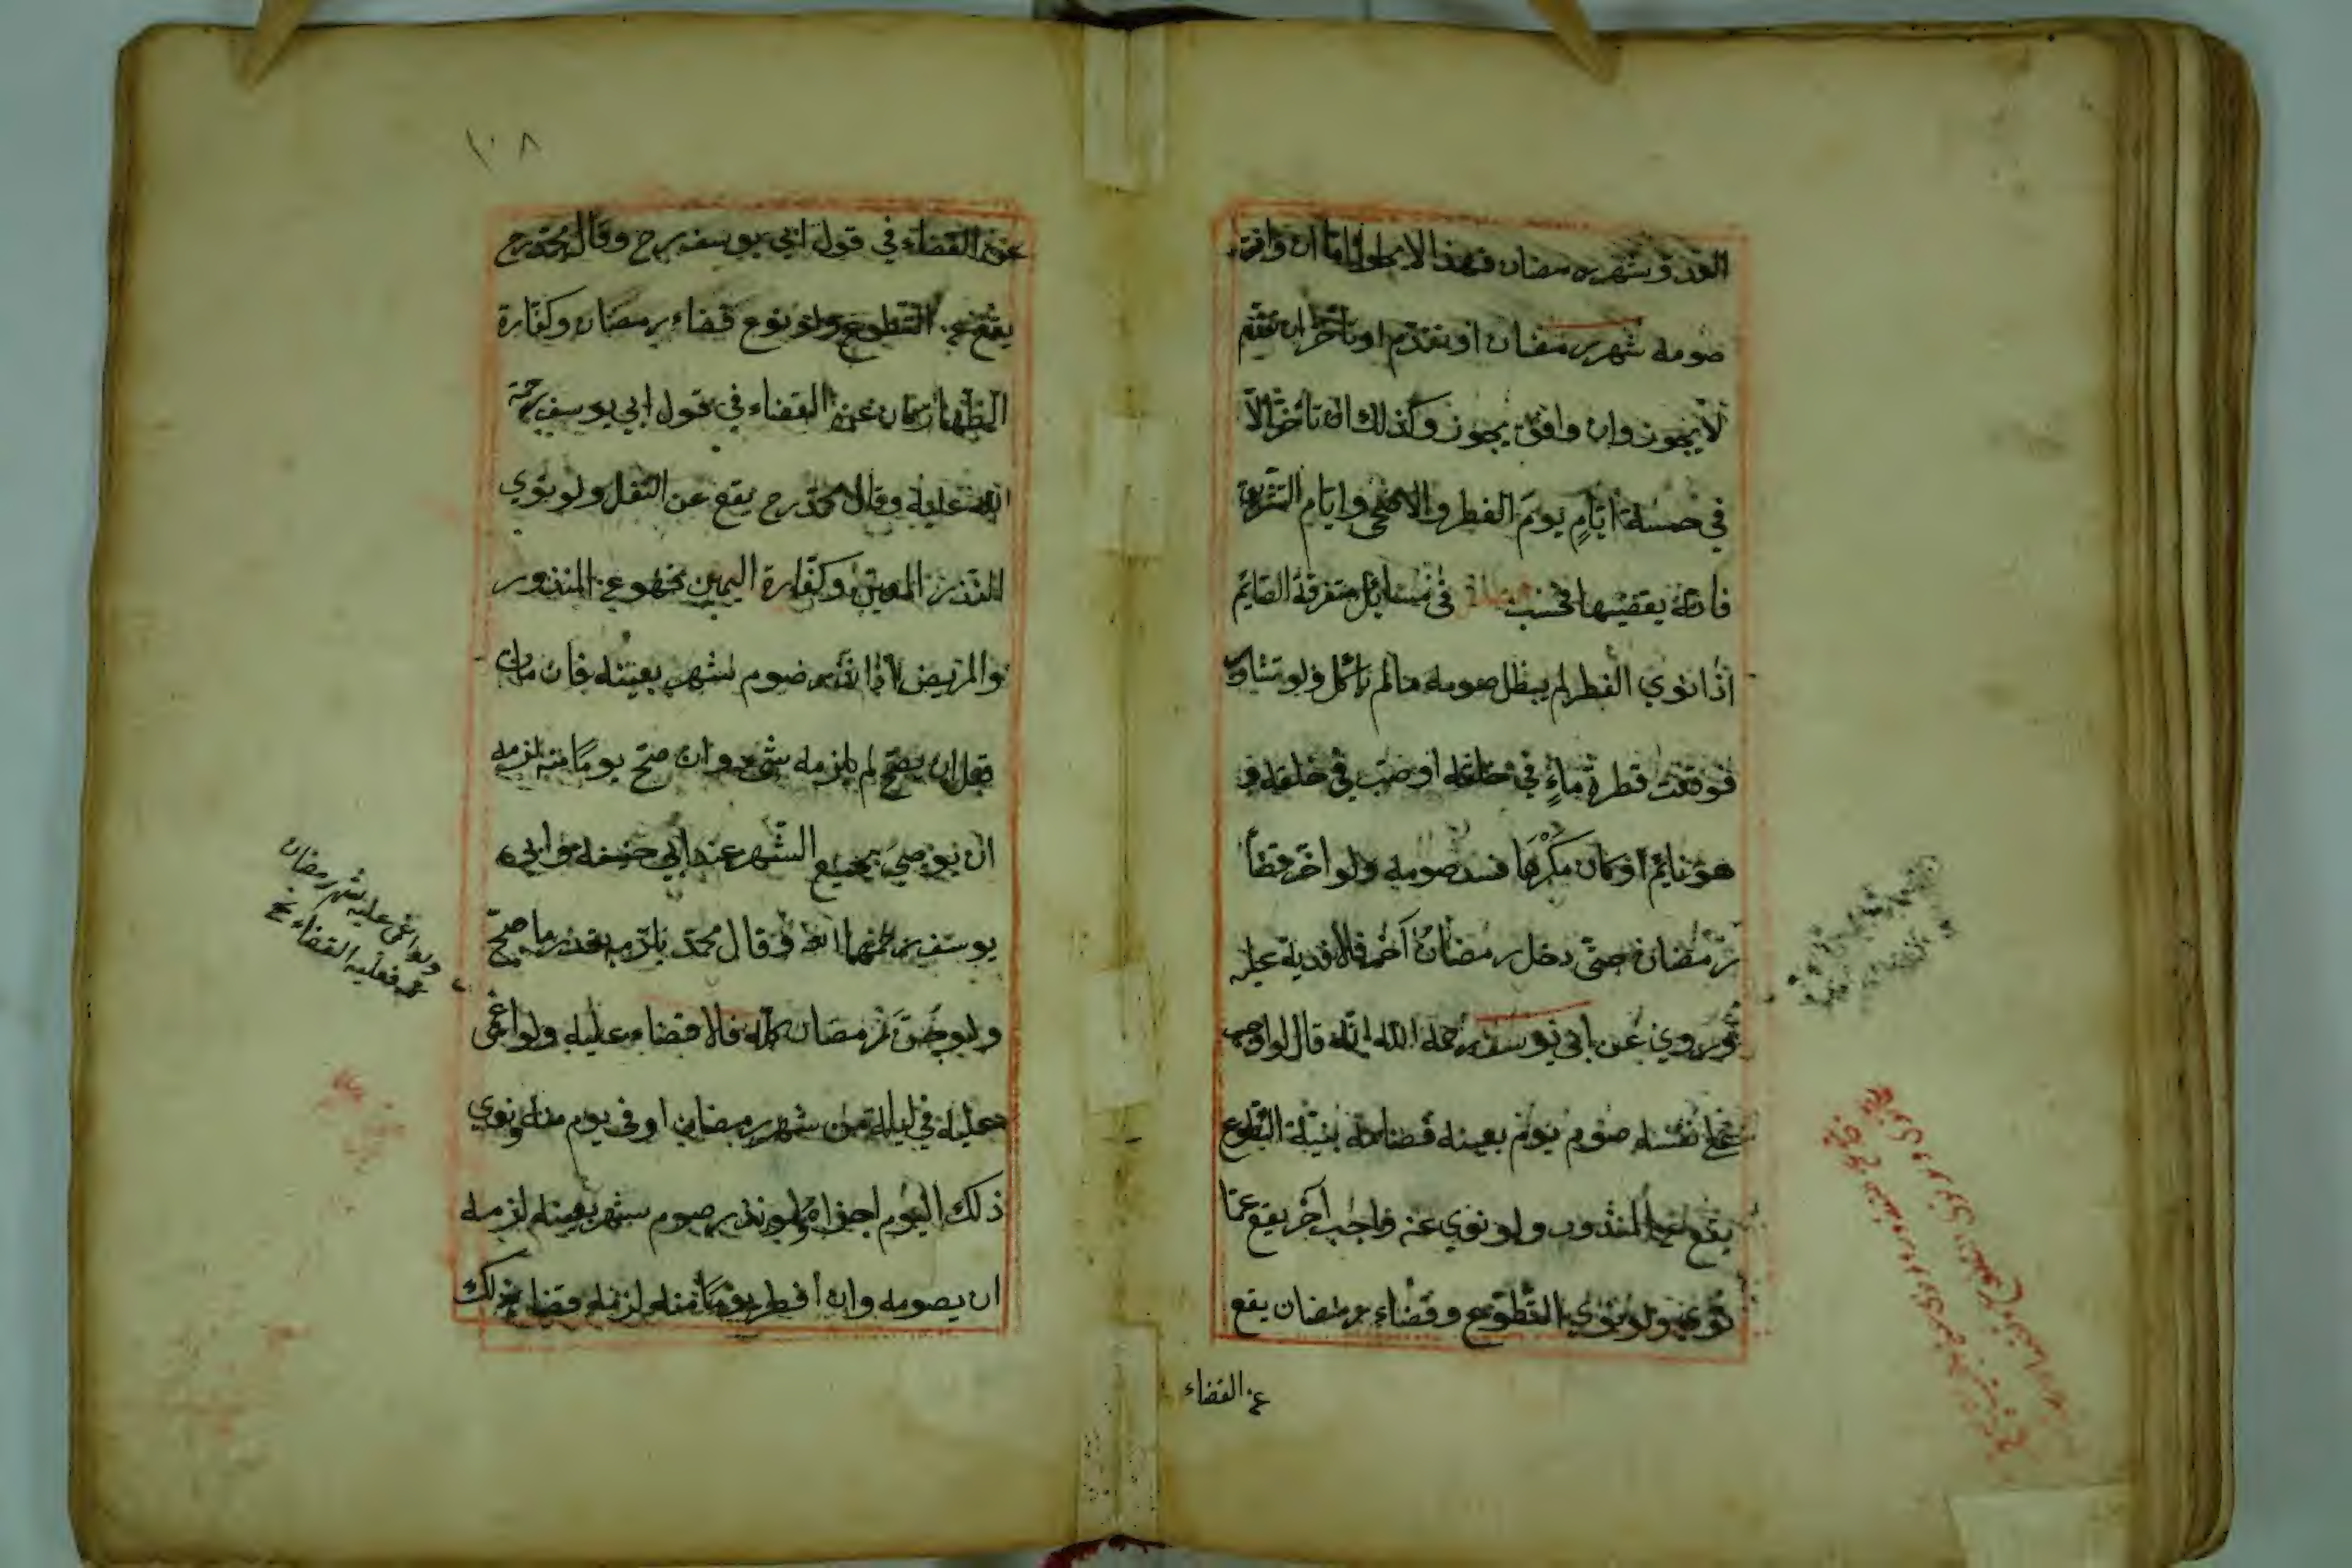 العدو شهر رمضان فهذا لا يخلو اما ان وافق
صومه شهر رمضان او تقدم او تأخر ان تقدم
لا يجوز وان وافق يجوز وكذلك ان تأخر الا
في خمسة ايام يوم الفطر والاضحى وايام التشريق
فانه يقضيها فحسب في مسائل متفرقة الصايم
اذا نوي الفطر لم يبطل صومه ما لم يأكل ولو
فوقعت قطرة ماء في حلقه او صب في حلقه و
هو نايم او كان مكرها فسد صومه ولو اخر قضا
رمضان حتى دخل رمضان آخر فلا فدية عليه
وروي عن ابي يوسف رحمه الله انه قال لو اوجب
على نفسه صوم يوم بعينه فصامه بنية التطوع
يقع عن المنذور ولو نوي عنه واجب آخر يقع عما
نوي ولو نوي التطوع وقضاء رمضان يقع
عن القضاء
١٠٨
عن القضاء في قول ابي يوسف رح وقال محمد رح
يقع عن التطوع ولو نوي قضاء رمضان وكفارة
الظهار كان عن القضاء في قول ابي يوسف رحمة
الله عليه وقال محمد رح يقع عن النفل ولو نوي
النذر المعين وكفارة اليمين فهو عن المنذور
والمريض اذا نذر صوم شهر بعينه فان مات
قبل ان يصح لم يلزمه شيء وان صح يوما منه لزمه
ان يوصي بجميع الشهر عند ابي حنيفة وابي
يوسف رحمهما الله وقال محمد يلزمه بقدر ما صح
ولو جن رمضان كله فلا قضاء عليه ولو اغمي
عليه في ليلة من شهر رمضان او في يوم منه ونوي
ذلك اليوم اجزاه ولو نذر صوم شهر بعينه لزمه
ان يصومه وان افطر يوما منه لزمه قضاء ذلك
ولو اغمي عليه شهر رمضان
فعليه القضاء